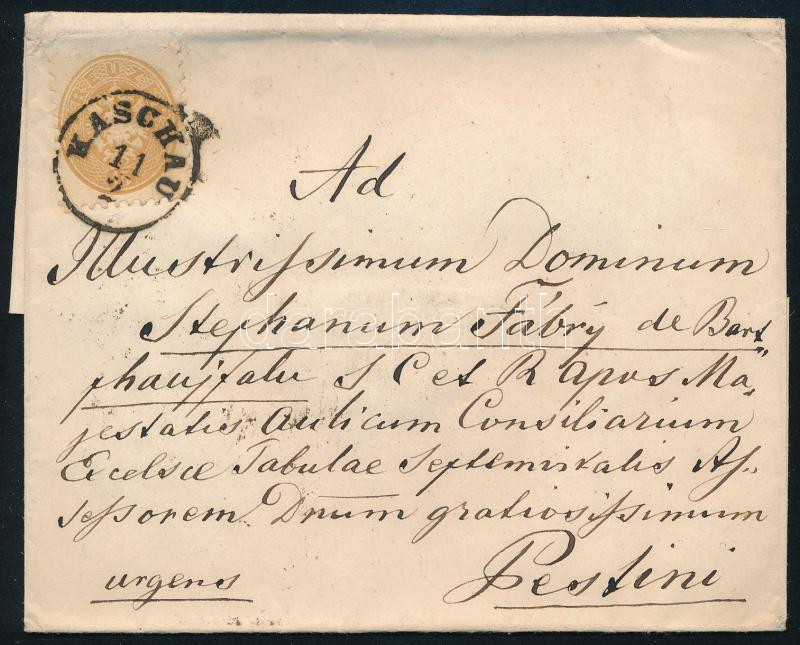 KREUZER
KASCHAU
11
2
Ad
Illustrissimum Dominum
Stephanum Fábrÿ de Bart
phaujfalu S C et R Apos Ma
jestatis Aulicum Consiliarium
Excelsae Tabulae Septemviralis As
sessorem Dnum gratiosissimum
urgens Pestini
darabanth